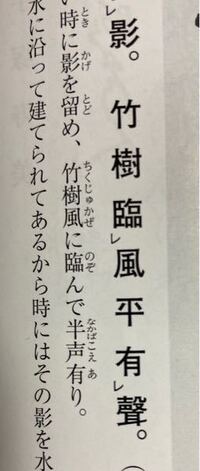 影。竹樹臨レ風平有レ聲。
時に影を留め、竹樹風に臨んで半声有り。
水に沿って建てられてあるから時にはその影を水